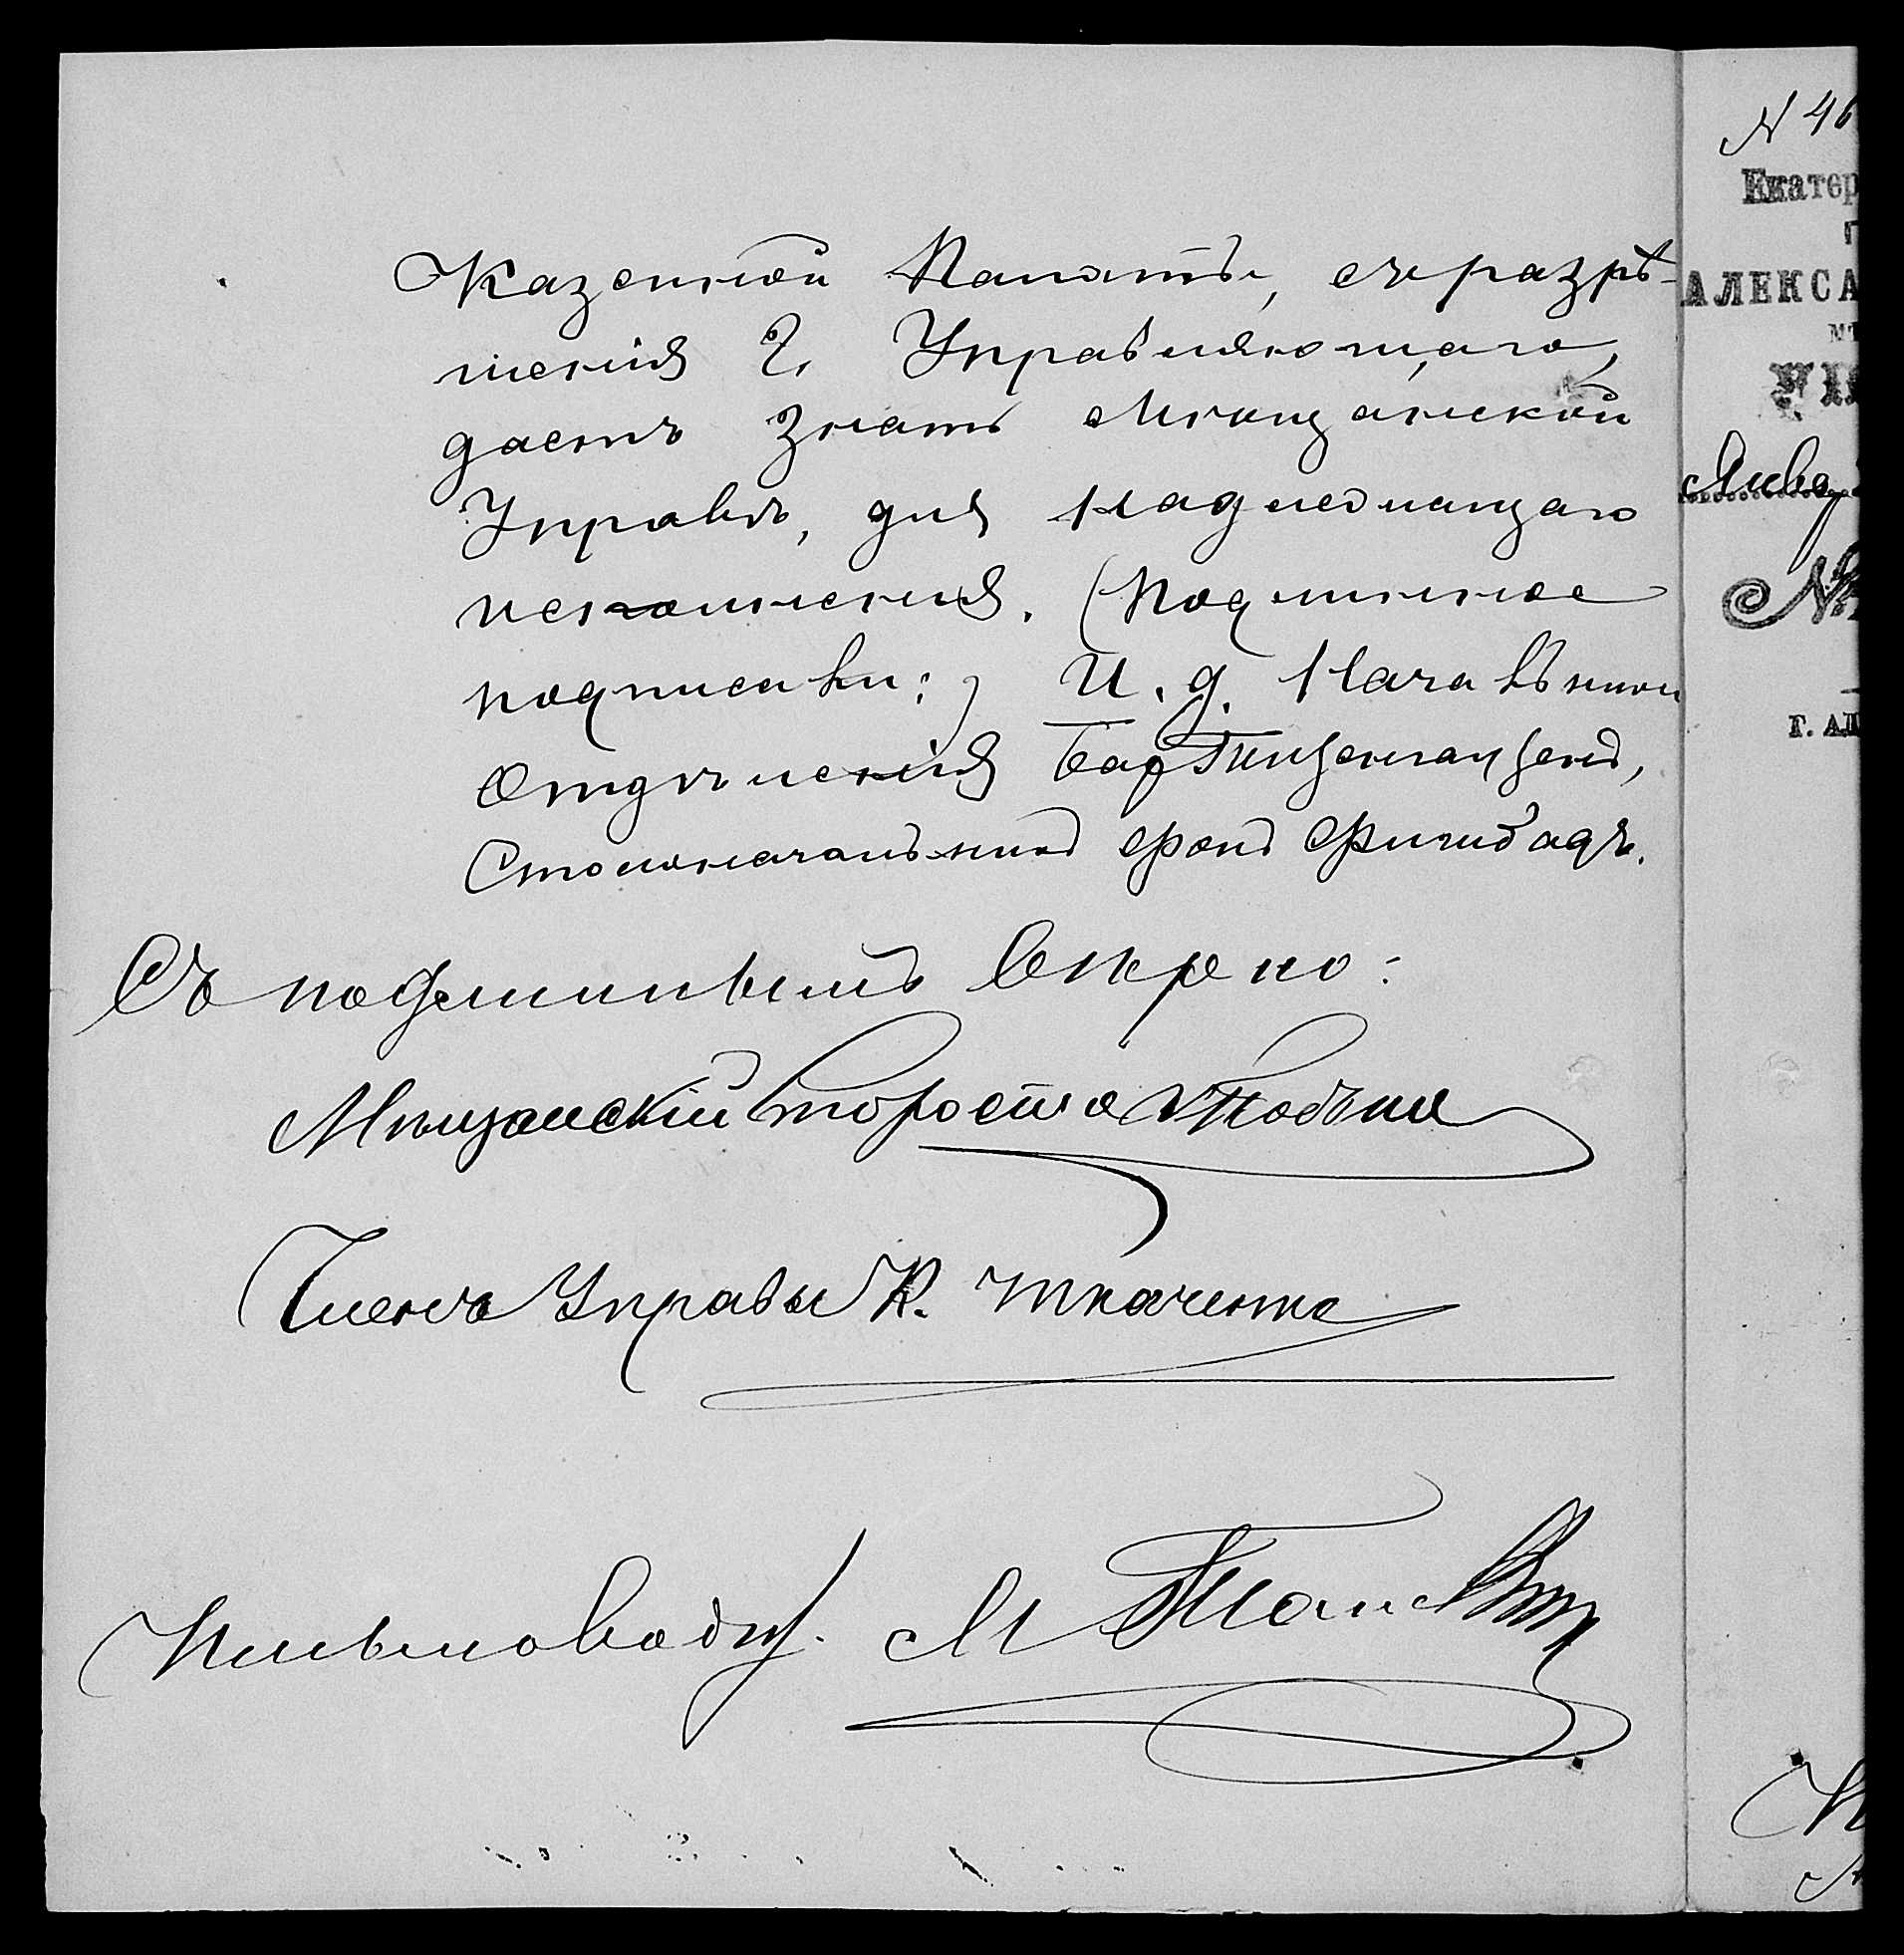 Казенной Палаты, съ разрѣ-
шенія Г. Управляющаго,
даетъ знать Мѣщанской
Управѣ, для надлежащаго
исполненія. (Подлинное
подписали:) И. д. Начальника
Отдѣленія
Столоначальникъ фонъ
Съ подлиннымъ вѣрно:
Мѣщанскій Староста
Членъ Управы К. Ткаченко
Письмоводит. М
N 46
Екатер
АЛЕКСА
Г. АЛ